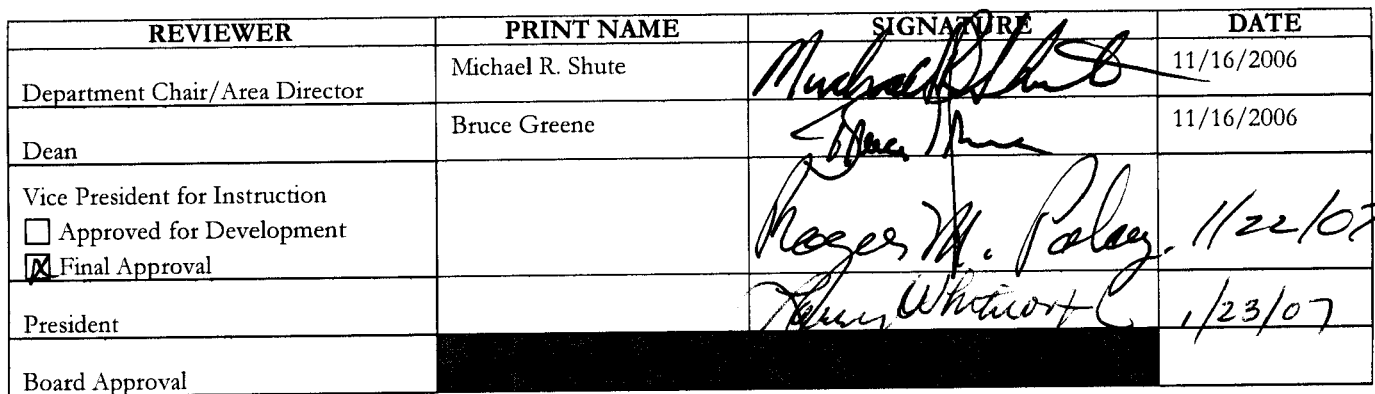 REVIEWER PRINT NAME SIGNATURE DATE
Department Chair/Area Director Michael R. Shute Michael R Shute 11/16/2006
Dean Bruce Greene 11/16/2006
Vice President for Instruction
Approved for Development
Roger M. Palay 1/22/07
Final Approval
President Whitworth 1/23/07
Board Approval